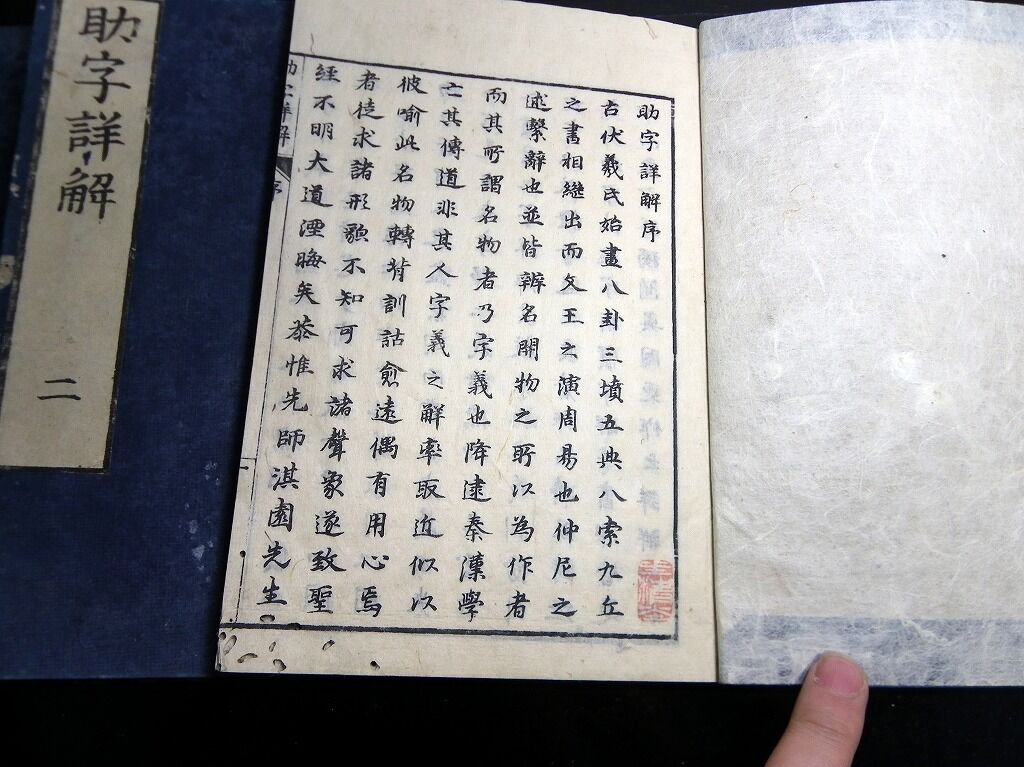 助字詳解序
古伏羲氏始畫八卦三墳五典八索九丘
之書相繼出而文王之演周易也仲尼之
述繫辭也並皆辨名開物之所以為作者
而其所謂名物者乃字義也降逮秦漢學
亡其傳道非其人字義之解率取近似以
彼喻此名物轉背訓詁愈遠偶有用心焉
者徒求諸形歌不知可求諸聲象遂致聖
經不明大道湮晦矣恭惟先師淇園先生
助字詳解
序
助字詳解
二